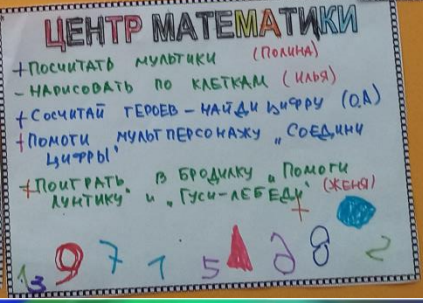 ЦЕНТР МАТЕМАТИКИ
+ ПОСЧИТАТЬ МУЛЬТИКИ (ПОЛИНА)
- НАРИСОВАТЬ ПО КЛЕТКАМ (ИЛЬЯ)
+ СОСЧИТАЙ ГЕРОЕВ - НАЙДИ ЦИФРУ (О.А)
+ ПОМОГИ МУЛЬТПЕРСОНАЖУ „СОЕДИНИ
ЦИФРЫ"
+ ПОИГРАТЬ В БРОДИЛКУ „ПОМОГИ
ЛУНТИКУ" И „ГУСИ-ЛЕБЕДИ" (ЖЕНЯ)
+
13 9 7 1 5 8 2